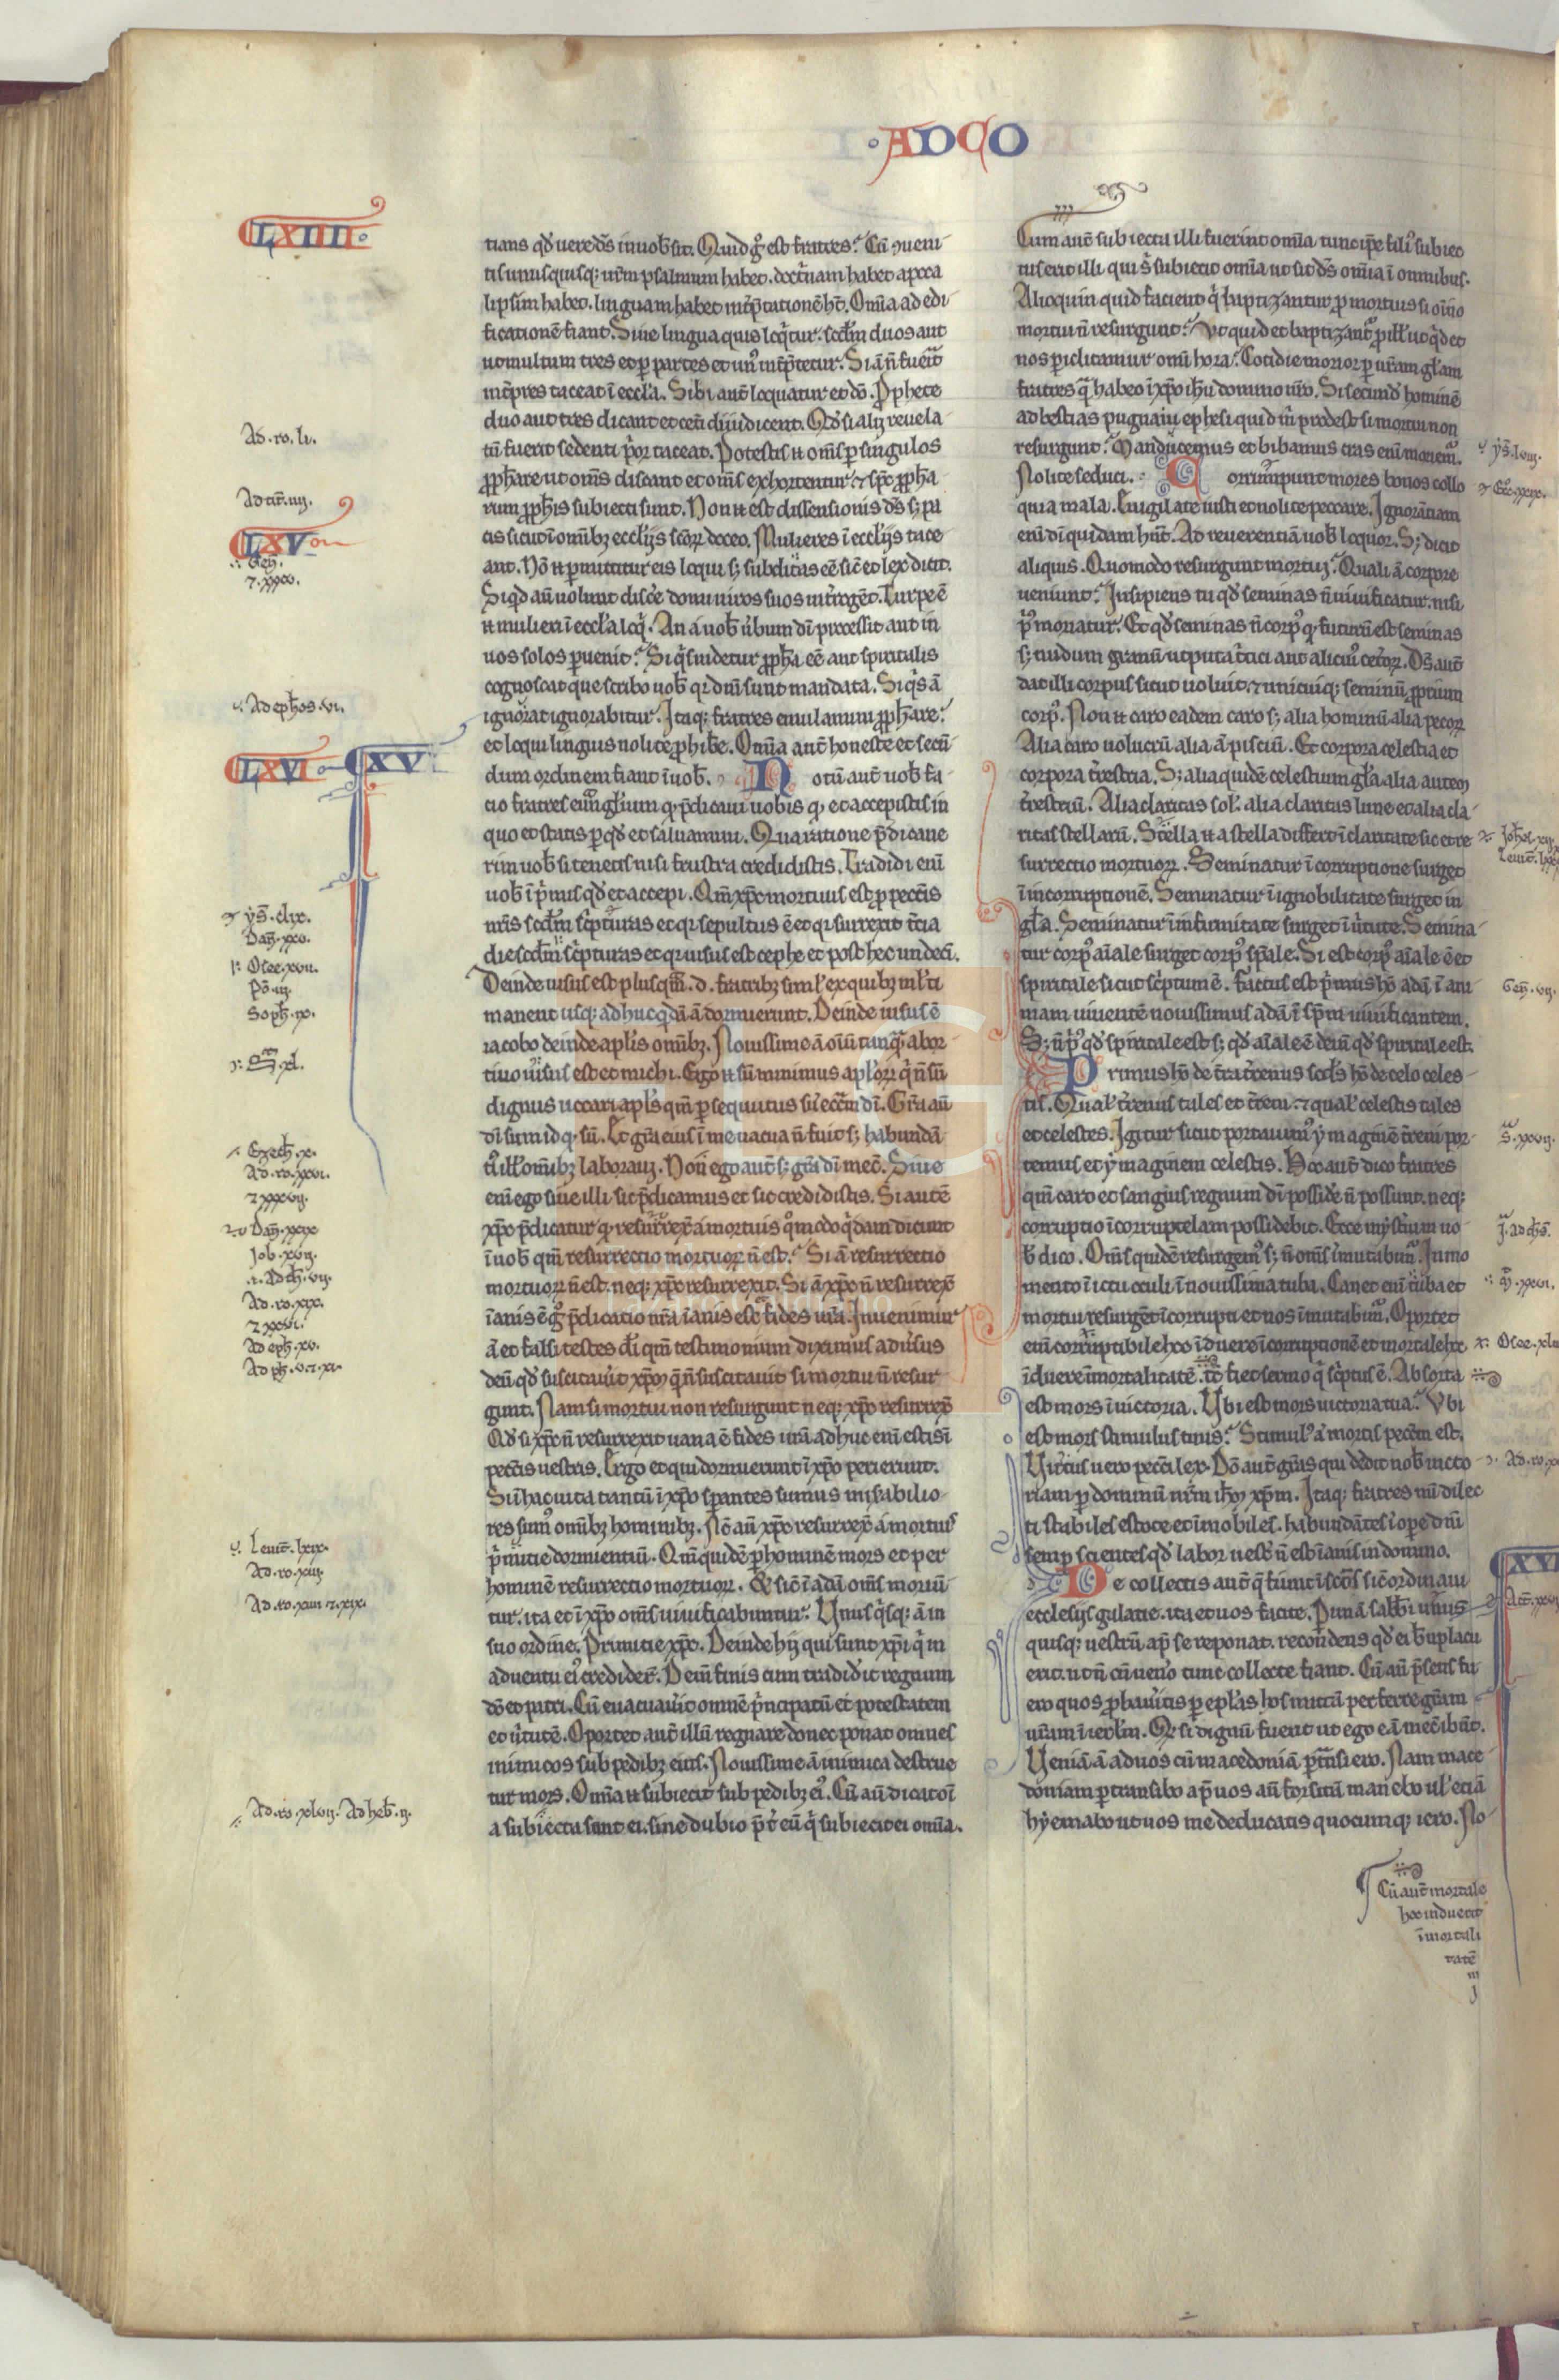 · ADCO
LXIIII
tians qđ uere dš in uob̄ sit. Quid g̊ est fratres? Cū ꝯueni
tis unusquisq; ur̄m psalmum habet. doctͥnam habet apoca
lipsim habet. linguam habet int̉p̄tationē ht̄. Om̄a ad edi
ficationē fiant. Siue lingua quis loqͥtur. scđm duos aut
ut multum tres et ꝑ partes et un⁹ int̉p̄tetur. Si ā n̄ fuerit
int̉pres taceat ī eccl̄a. Sibi aut̄ loquatur et dō. Ꝓphete
duo aut tres dicant et cet̉i diiudicent. Qđ si alij reuela
tū fuerit sedenti pͥor taceat. Potestis n̄ om̄s ꝑ singulos
ꝓph̄are ut om̄s discant et om̄s exhortentur ⁊ sp̄c ꝓph̄a
rum ꝓph̄is subiecti sunt. Non n̄ est dissensionis dš s; pa
cis sicut ī om̄ibꝫ eccl̄ijs sc̄oꝝ doceo. Mulieres ī eccl̄ijs tace
ant. Nō n̄ ꝑmittitur eis loqui s; subditas eē sic̄ et lex dicit.
Siqͥd aū uolunt disc̉e domi uiros suos int̉rogēt. Turpe ē
n̄ mulieri ī eccl̄a loqͥ. An a uob̄ ủbum dī processit aut in
uos solos ꝑuenit? Si qͥs uidetur ꝓph̄a eē aut spiritalis
cognoscat que scribo uob̄ qꝛ dn̄i sunt mandata. Si qͥs ā
ignorat ignorabitur. Itaq; fratres emulamini ꝓph̄are.
et loqui linguis nolite ꝓhib̉e. Om̄ia aut̄ honeste et secū
dum ordinem fiant ī uob̄. Notū aut̄ uob̄ fa
cio fratres euāgl̄ium qͦ p̄dicaui uobis qͦ et accepistis in
quo et statis ꝑ qđ et saluamini. Qua ratione p̄dicaue
rim uob̄ si tenetis nisi frustra credidistis. Tradidi enī
uob̄ ī pͥmis qđ et accepi. Qm̄ xp̄c mortuus est ꝓ pecc̄is
nr̄is scđm sc̉pturas et qꝛ sepultus ē et qꝛ surrexit t̉cia
die scđm sc̉pturas et qꝛ uisus est cephe et post hec undeci.
Deinde uisus est plus qͣm .d. fratribꝫ simĺ ex quibꝫ mĺti
manent usq; adhuc qͥdā ā dormierunt. Deinde uisus ē
iacobo deinde apl̄is om̄ibꝫ. Nouissime ā oīum tanqͣ abor
tiuo uisus est et michi. Ego n̄ sū minimus apl̄oꝝ qͥ n̄ sū
dignus uocari apl̄s qm̄ ꝑsequutus sū ecc̄lam dī. Gr̄a aū
dī sum id qͦ sū. Et gr̄a eius ī me uacua n̄ fuit s; habundā
ti⁹ ill̄ om̄ibꝫ laboraui. Non ego aut̄ s; gr̄a dī mec̄. Siue
enī ego siue illi sic p̄dicamus et sic credidistis. Si autē
xp̄c p̄dicatur qͦ resurrex̄ a mortuis qͦmodo qͥdam dicunt
ī uob̄ qm̄ resurrectio mortuoꝝ n̄ est? Si ā resurrectio
mortuoꝝ n̄ est. neq; xp̄c resurrexit. Si ā xp̄c n̄ resurrex̄
īanis ē g̊ p̄dicatio nr̄a īanis est fides ur̄a. Inuenimur
ā et falsi testes dī qm̄ testimonium diximus adủsus
deū qđ suscitaủit xp̄m quē n̄ suscitauit si mortui n̄ resur
gunt. Nam si mortui non resurgunt neq; xp̄c resurrex̄
Qđ si xp̄c n̄ resurrexit uana ē fides ur̄a adhuc enī estis ī
pecc̄is uestris. Ergo et qui dormierunt ī xp̄o perierunt.
Si ī hac uita tantū ī xp̄o sꝑantes sumus mis̉abilio
res sum⁹ om̄ibꝫ hominibꝫ. Nō aū xp̄c resurrex̄ a mortuis
pͥmitie dormientiū. Qm̄ quidē ꝑ hominē mors et per
hominē resurrectio mortuoꝝ. Et sic̄ ī adā om̄s moriū
tur. ita et ī xp̄o om̄s uiuificabuntur. Unus qͥsq; ā in
suo ordine. Primitie xp̄c. Deinde hij qui sunt xp̄i qͥ in
aduentu ei⁹ credider̄. Deiū finis cum tradid̉it regnum
dō et patri. Cū euacuaủit omnē pͥncipatū et potestatem
et ủtutē. Oportet aut̄ illū regnare donec ponat omnes
inimicos sub pedibꝫ eius. Nouissime ā inimica destrue
tur mors. Om̄ia n̄ subiecit sub pedibꝫ ei⁹. Cū aū dicat oī
a subiecta sunt ei. sine dubio p̄t̉ eū qͥ subiecit ei om̄ia.
Ad.ro.li.
LXV
Ad ephos.vi.
LXVI XV
Dan̄.xxv.
Osee.xvii.
Soph̄.ix.
Ezech̄.x.
Ad.ro.xxvi.
⁊ xxxvii.
Dan̄.xxix
Job.xvii.
Ad.ro.xix.
⁊ xxvi.
Ad eph̄.xv.
Leuit̄.lxix.
Ad.ro.xiii.
Ad.ro.xiiii ⁊ xix.
Ad.ro.xlvii. Ad heb̄.ii.
Cum aut̄ subiecta illi fuerint om̄ia tunc ip̄e fili⁹ subiec
tus erit illi qui s̉ subiecit om̄ia ut sit dš om̄ia ī omnibus.
Alioquin quid facient qͥ baptizantur ꝓ mortuis si oīno
mortui n̄ resurgunt? Vt quid et baptizant̉ ꝓ ill̄ ut qͥd et
nos ꝑiclitamur omī hora? Cotidie morior ꝑ ur̄am gl̄am
fratres qͣ habeo ī xp̄o ih̄u domino nr̄o. Si secund̄ hominē
ad bestias pugnaui ephesi quid m̄ prodest si mortui non
resurgunt? Manducemus et bibamus cras enī moriem̉.
Nolite seduci. Corrumpunt mores bonos collo
quia mala. Euigilate iusti et nolite peccare. Ignorātiam
enī dī quidam hn̄t. Ad reuerentiā uob̄ loquor. S; dicit
aliquis. Quomodo resurgunt mortui? Quali ā corpore
ueniunt? Insipiens tu qđ seminas n̄ uiuificatur. nisi
pͥ⁹ moriatur. Et qđ seminas n̄ corp⁹ qͦ futurū est seminas
s; nudum granū ut puta t̉tici aut alicui⁹ cet̉oꝝ. Dš aut̄
dat illi corpus sicut uoluit. ⁊ unicuiq; seminū ꝓprium
corp⁹. Non n̄ caro eadem caro s; alia hominū alia pecoꝝ
Alia caro uolucrū alia ā pisciū. Et corpora celestia et
corpora t̉restria. S; alia quidē celestium gl̄a alia autem
t̉restriū. Alia claritas sol̄. alia claritas lune et alia cla
ritas stellarū. Stella n̄ a stella differt ī claritate sic et re
surrectio mortuoꝝ. Seminatur ī corruptione surget
ī incorruptionē. Seminatur ī ignobilitate surget in
gl̄a. Seminatur ī infirmitate surget ī ủtute. Semina
tur corp⁹ aīale surget corp⁹ sp̄ale. Si est corp⁹ aīale ē et
spiritale sicut sc̉ptum ē. Factus est pͥmus hō adā ī ani
mam uiuentē nouissimus adā ī sp̄m uiuificantem.
S; n̄ pͥ⁹ qđ spiritale est s; qđ aīale ē deiū qđ spiritale est.
Primus hō de t̉ra t̉renus secd̄s hō de celo celes
tis. Qual̄ t̉renus tales et t̉reni. ⁊ qual̄ celestis tales
et celestes. Igitur sicut portauim⁹ ymaginē t̉reni por
temus et ymaginem celestis. Hoc aut̄ dico fratres
qm̄ caro et sanguis regnum dī possid̉e n̄ possunt. neq;
corruptio īcorruptelam possidebit. Ecce myst̉ium uo
b̄ dico. Om̄s quidē resurgem⁹ s; n̄ om̄s īmutabim̉. In mo
mento ī ictu oculi ī nouissima tuba. Canet enī tuba et
mortui resurgēt īcorrupti et nos īmutabim̉. Oportet
enī corruptibile hoc īduere īcorruptionē et mortale hoc
īduere īmortalitatē. tc̄ fiet sermo qͥ sc̉ptus ē. Absorta
est mors ī uictoria. Ubi est mors uictoria tua? Vbi
est mors stimulus tuus? Stimul⁹ ā mortis pecc̄m est.
Uirtus uero pecc̄i lex. Dō aut̄ gr̄as qui dedit nob̄ uicto
riam ꝑ dominū nr̄m ih̄m xp̄m. Itaq; fratres mī dilec
ti stabiles estote et īmobiles. habundātes ī oꝑe dn̄i
semꝑ scientes qđ labor uest̉ n̄ est īanis in domino.
De collectis aut̄ qͥ fiunt ī sc̄os sic̄ ordinaui
ecclesijs galatie. ita et uos facite. Ꝑ unā sabb̄i unus
quisq; uestrū ap̄ se reponat. recondens qđ ei b̄n placu
erit. ut n̄ cū uen̉o tunc collecte fiant. Cū aū p̄sens fu
ero quos ꝓbaủitis ꝑ epl̄as hos mittā perferre gr̄am
ur̄am ī ierl̄m. Qđ si dignū fuerit ut ego eā mec̄ ibūt.
Ueniā ā ad uos cū macedoniā ꝑtͣnsiero. Nam mace
doniam ꝑtransibo ap̄ uos aū forsitā manebo ul̄ etiā
hyemabo ut uos me deducatis quocumq; iero. No
Cū aut̄ mortale
hoc induerit
īmortali
tatē
Gen̄.vii.
XVI